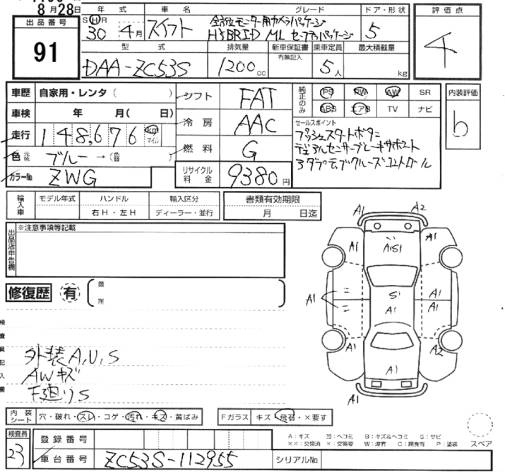 8月28日
出品番号
91
年式 車名 グレード ドア・形状
SHR
30年 4月 スイフト 全方位モニター用カメラパッケージ
HYBRID ML セーフティパッケージ 5
型式 排気量 新車保証書 乗車定員 最大積載量
内無記入
DAA-ZC53S 1200cc 5人 kg
評価点
4
車歴 自家用・レンタ ( )
車検 年 月( 日)
走行 148,676 km マイル
色 ブルー→
カラーNo ZWG
シフト FAT
冷房 AAC
燃料 G
リサイクル料金 9380円
純正のみ PS PW AW SR
ABS エアB TV ナビ
セールスポイント
プッシュスタートボタン
デュアルセンサーブレーキサポート
アダプティブクルーズコントロール
内装評価
b
輸入車 モデル年式 ハンドル 輸入区分
年 右H・左H ディーラー・並行
書類有効期限
月 日迄
※注意事項等記載
出品店申告欄
修復歴 有
検査員記入欄
外装A,U,S
AWキズ
下廻りS
A1 A2
A1 A1S1 A1
A1 S1 A1
A1
A1 A2
A1
内装シート 穴・破れ・スレ・コゲ・汚れ・キズ・黄ばみ
Fガラス キズ・飛石・×要す
スペア
検査員
23
登録番号
車台番号 ZC53S-112955 シリアルNo